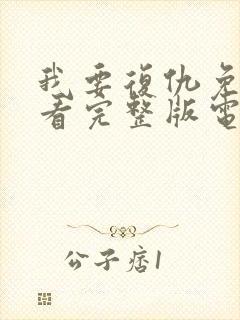 我要復仇免
看完整版電
公子痞1